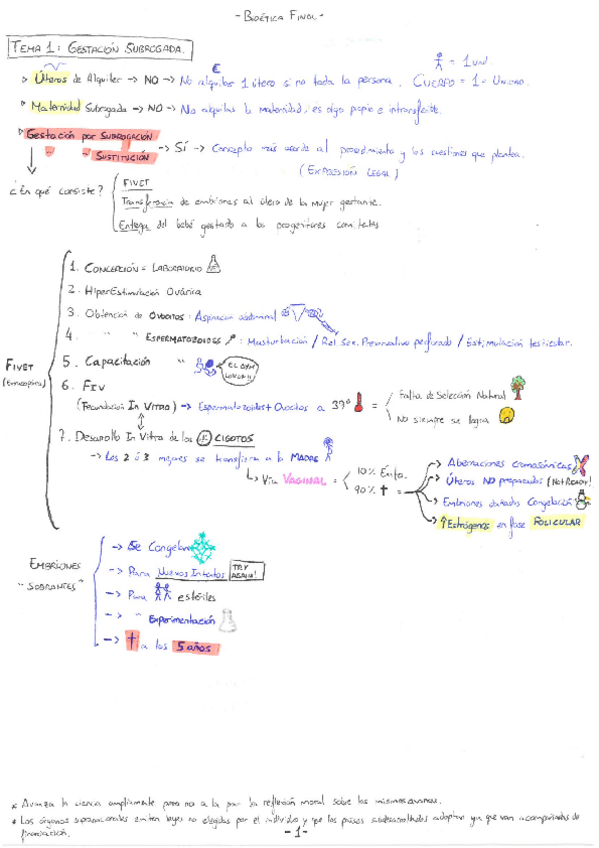 - BIOÉTICA FINAL -
TEMA 1: GESTACIÓN SUBROGADA.
> Úteros de Alquiler -> NO -> No alquilas 1 útero si no toda la persona. CUERPO = 1 = UNIDAD.
= 1 UNI.
> Maternidad Subrogada -> NO -> No alquilas la maternidad, es algo propio e intransferible.
> Gestación por SUBROGACIÓN
" " SUSTITUCIÓN -> SÍ -> Concepto más usado al procedimiento y las cuestiones que plantea.
(EXPRESIÓN LEGAL)
¿En qué consiste?
FIVET
Transferencia de embriones al útero de la mujer gestante.
Entrega del bebé gestado a los progenitores comitentes
FIVET
1. CONCEPCIÓN = LABORATORIO
2. HiperEstimulación Ovárica
3. Obtención de OVOCITOS: Aspiración abdominal
4. " " ESPERMATOZOIDES: Masturbación / Rel Sex. Preservativo perforado / Estimulación testicular.
5. Capacitación "
6. FIV
(Fecundación In VITRO) -> Espermatozoides + Ovocitos a 39º =
Falta de Selección Natural
No siempre se logra
7. Desarrollo In Vitro de los CIGOTOS
-> Los 2 ó 3 mejores se transfiere a la MADRE
-> Vía VAGINAL =
10% Éxito.
90% † =
-> Aberraciones cromosómicas
-> Úteros NO preparados (Not READY!)
-> Embriones dañados Congelación
-> ↑Estrógenos en fase FOLICULAR
EMBRIONES
"SOBRANTES"
-> Se Congelan
-> Para Nuevos Intentos TRY AGAIN!
-> Para estériles
-> " Experimentación
-> † a los 5 años
* Avanza la ciencia ampliamente pero no a la par la reflexión moral sobre los mismos avances.
* Los órganos supranacionales emiten leyes no elegidas por el individuo y que los países subdesarrollados adoptan ya que van acompañadas de financiación.
- 1 -